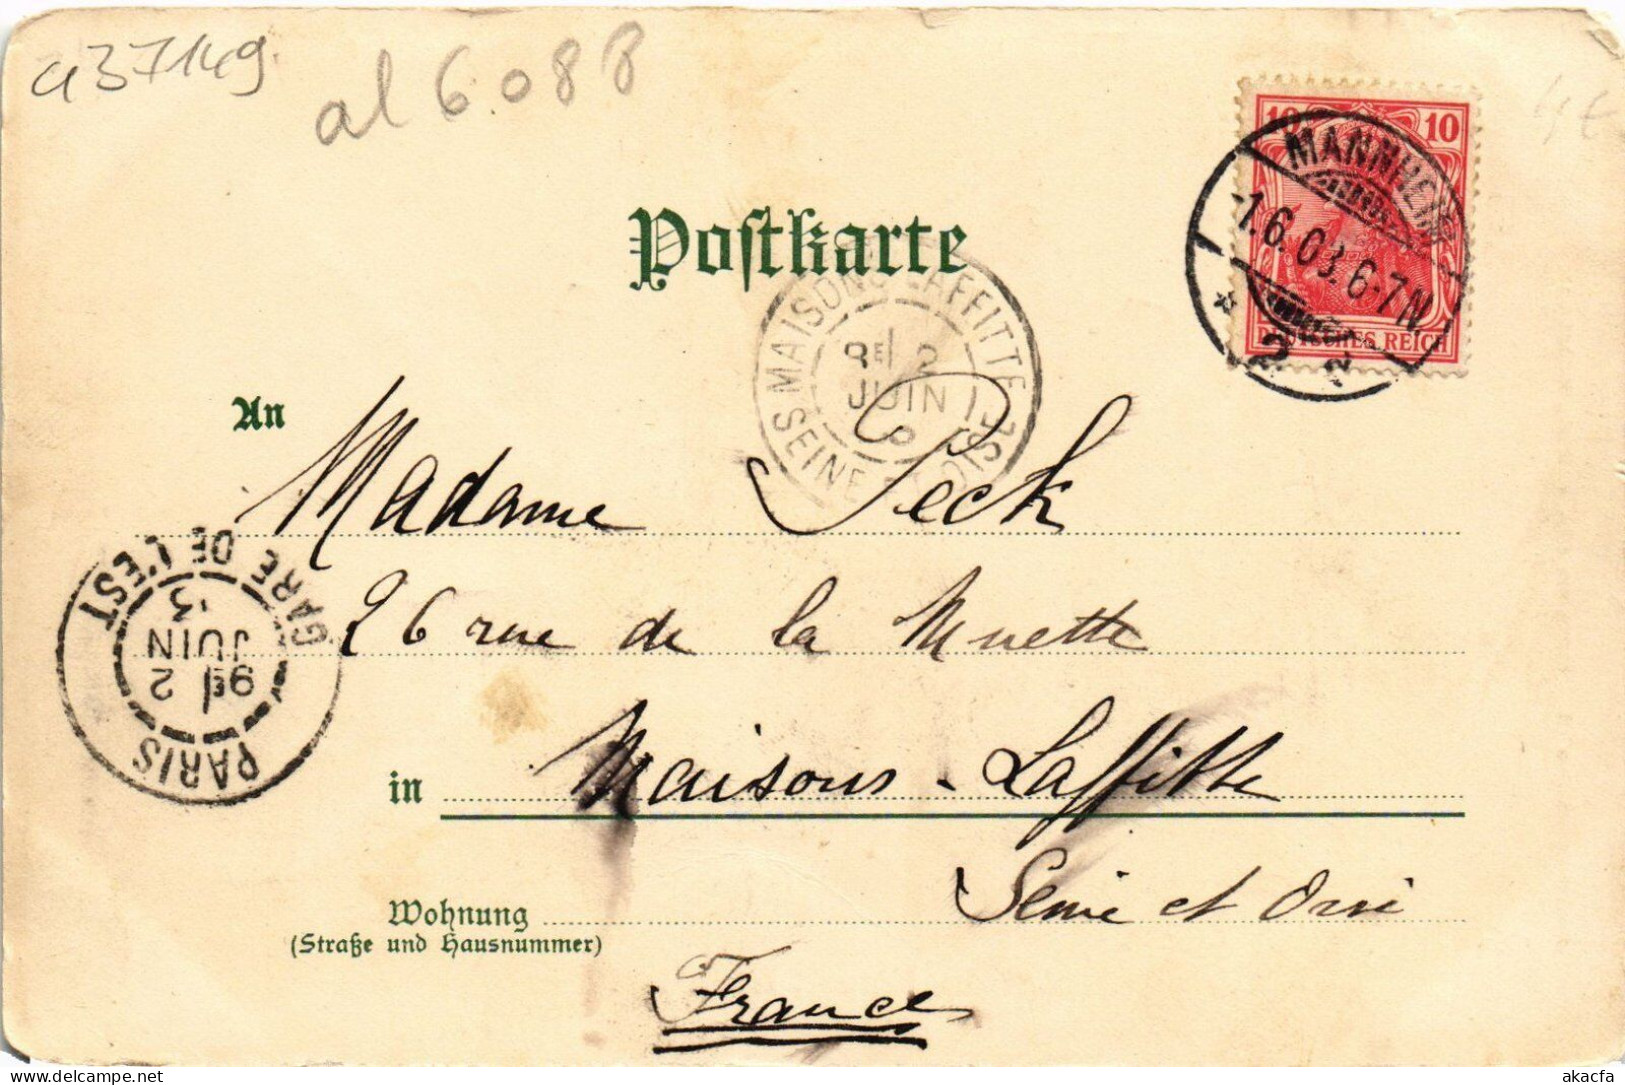 a37149
al 6088
10 10
DEUTSCHES REICH
MANNHEIM
1.6.03.6-7N.
* 2 2
Postkarte
MAISONS LAFFITTE
8E 2
JUIN
SEINE OISE
An Madame Peck
26 rue de la Muette
GARE DE L'EST
9E 2
JUIN
3
PARIS
in Maisons-Laffitte
Wohnung Seine et Oise
(Straße und Hausnummer)
France
akacfa